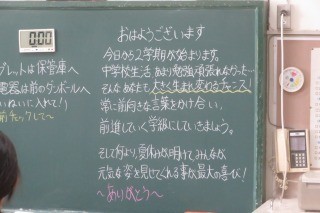 おはようございます
今日から2学期が始まります。
中学校生活、あまり勉強頑張れなかった…
そんなあなたも、大きく生まれ変わるチャンス!
常に前向きな言葉をかけ合い、
前進していく学級にしていきましょう。
そして何より、夏休みが明けてみんなが
元気な姿を見せてくれる事が最の喜び!
～ありがとう～
ブレットは保管庫へ
電器は前のダンボールへ
ていねいに入れて!)
前チェックして〜